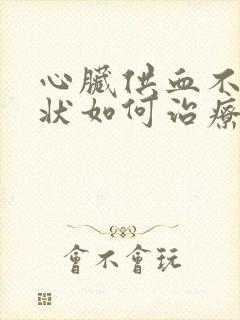 心臟供血不
狀如何治療
會不會玩